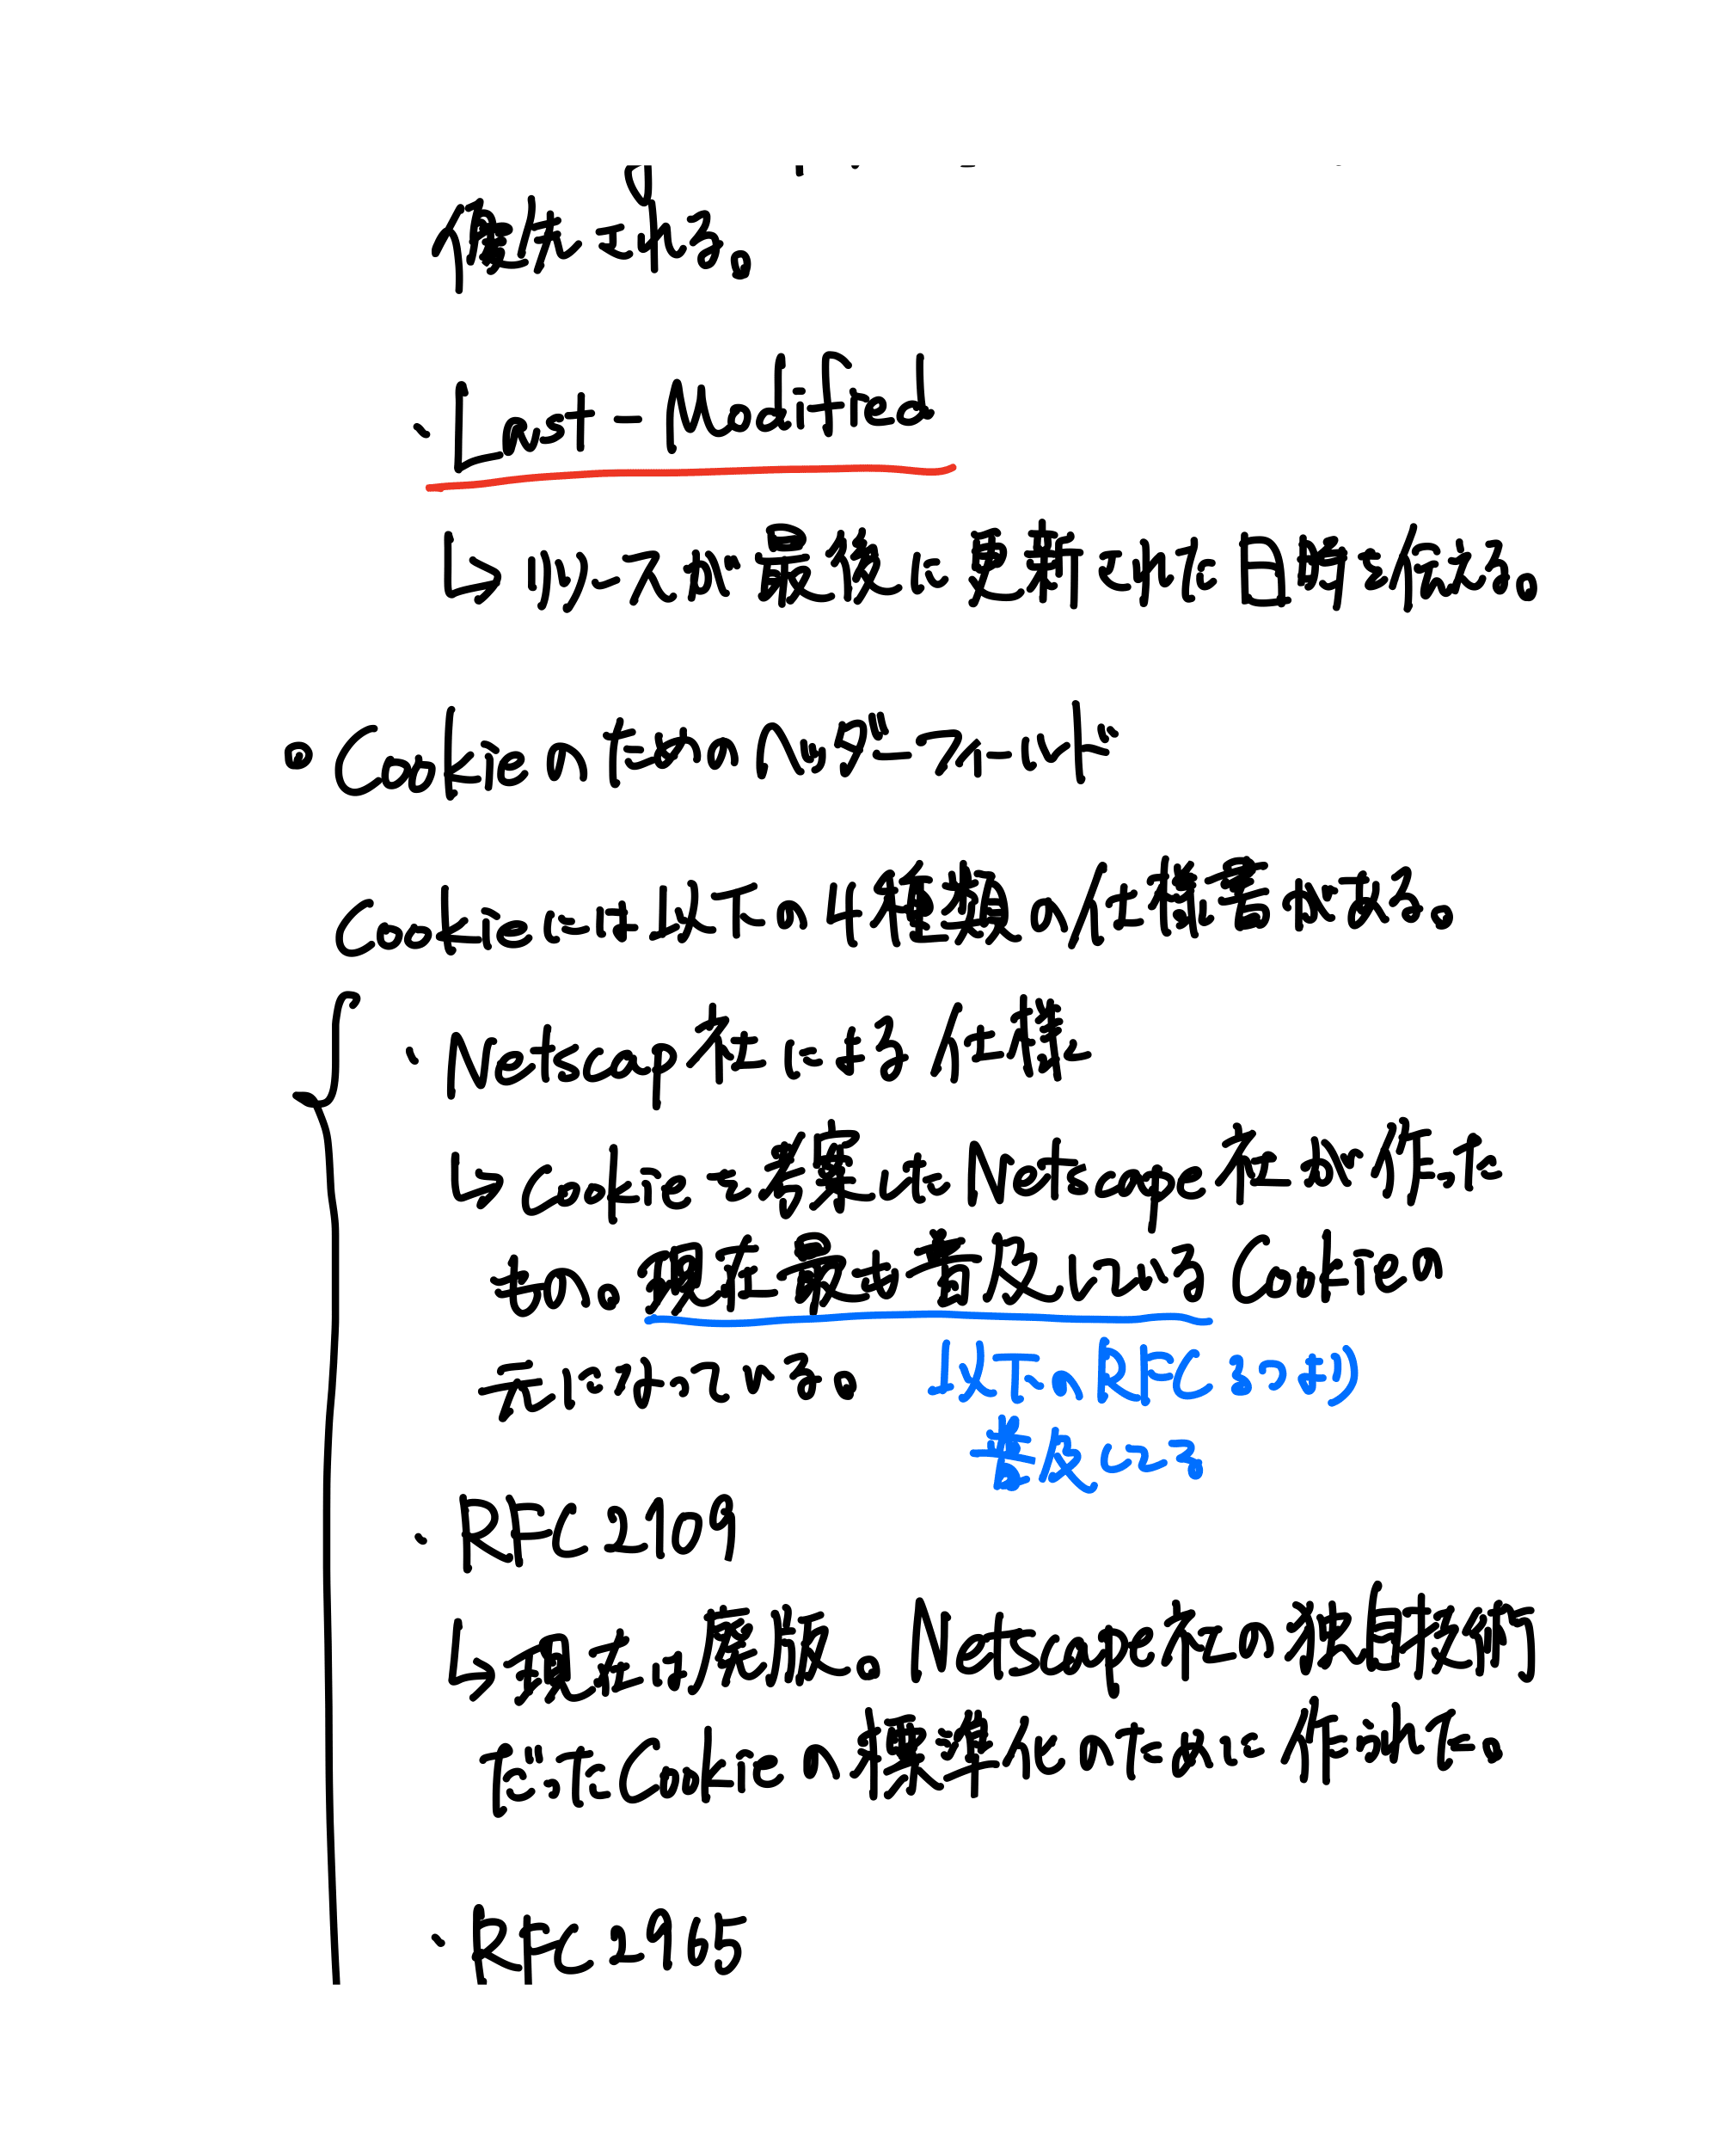 優先される。
・Last-Modified
↳リソースが最後に更新された日時を伝える。
○Cookieのためのヘッダーフィールド
Cookieには以下の4種類の仕様書がある。
・Netscap社による仕様
↳Cookieを考案したNetscape社が作った
もの。現在最も普及しているCookieの
元になっている。
以下のRFC3つより
普及してる
・RFC2109
↳現在は廃版。Netscape社の独自技術
だったCookieの標準化のために作られた。
・RFC2965